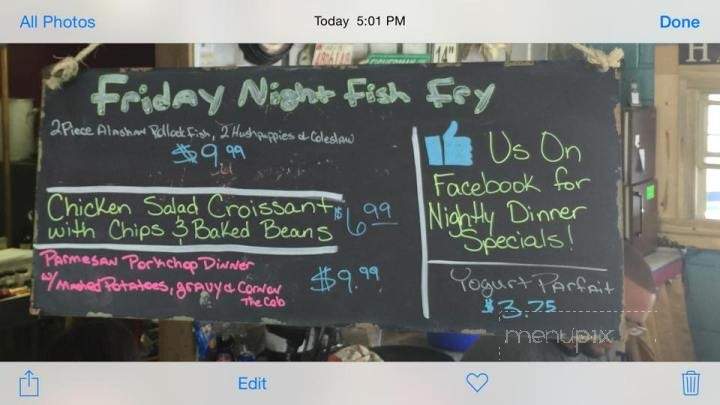 All Photos
Today 5:01 PM
Done
Friday Night Fish Fry
2 Piece Alaskan Pollock Fish, 2 Hushpuppies & Coleslaw
$9.99
Chicken Salad Croissant
with Chips & Baked Beans
$6.99
Parmesan Porkchop Dinner
w/ Mashed Potatoes, gravy & Corn on
The Cob
$9.99
Us On
Facebook for
Nightly Dinner
Specials!
Yogurt Parfait
$3.75
menupix
Edit